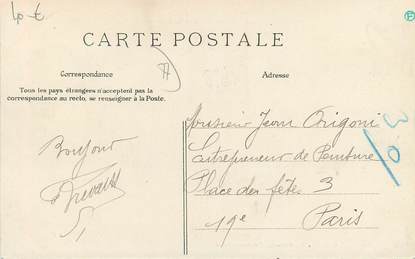 40 €
CARTE POSTALE
Correspondance
Adresse
Tous les pays étrangers n'acceptent pas la
correspondance au recto, se renseigner à la Poste.
Monsieur Jean Origoni
Entrepreneur de Peinture
Place des fêtes 3
19e Paris
Bonjour